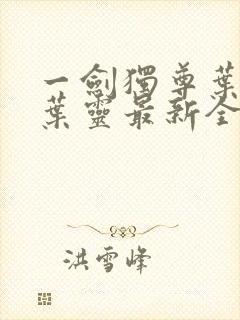 一劍獨尊葉
葉靈最新全
洪雪峰